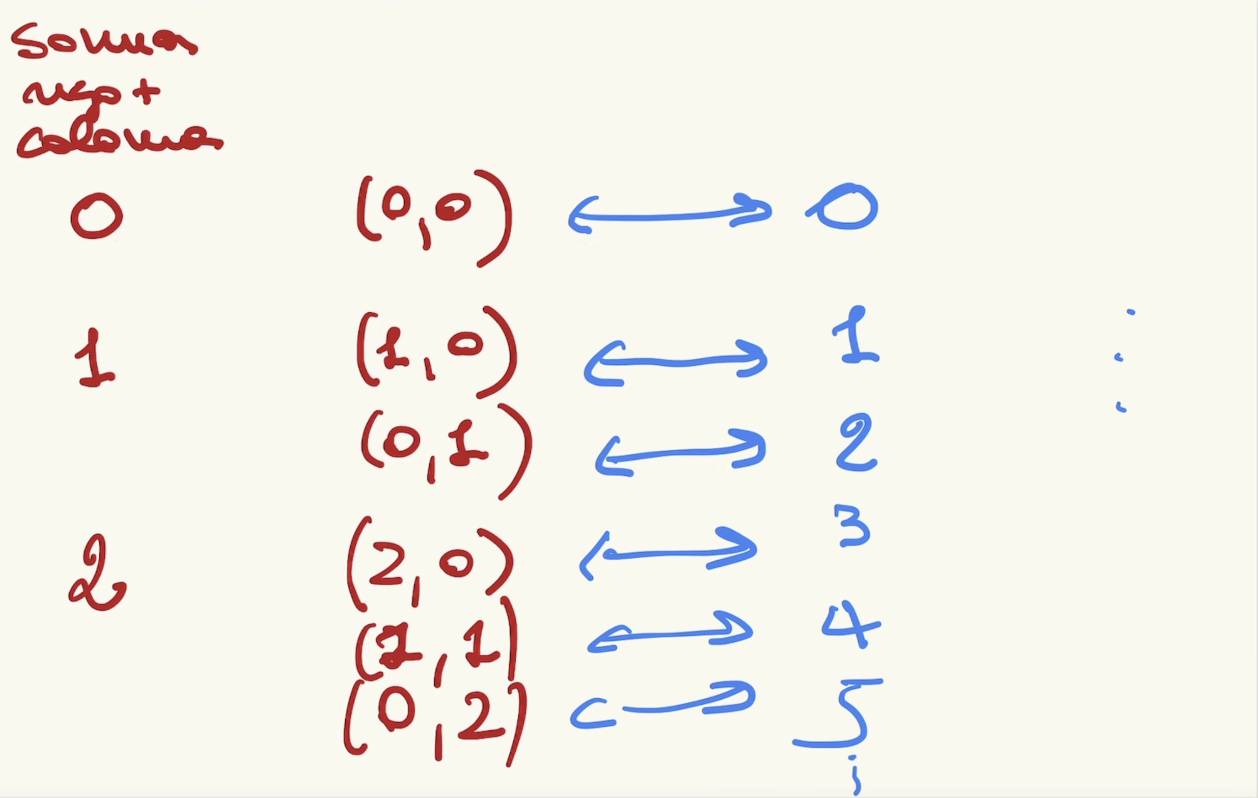 Somma
riga +
colonna
0 (0,0) ⟷ 0
1 (1,0) ⟷ 1
(0,1) ⟷ 2
2 (2,0) ⟷ 3
(1,1) ⟷ 4
(0,2) ⟷ 5